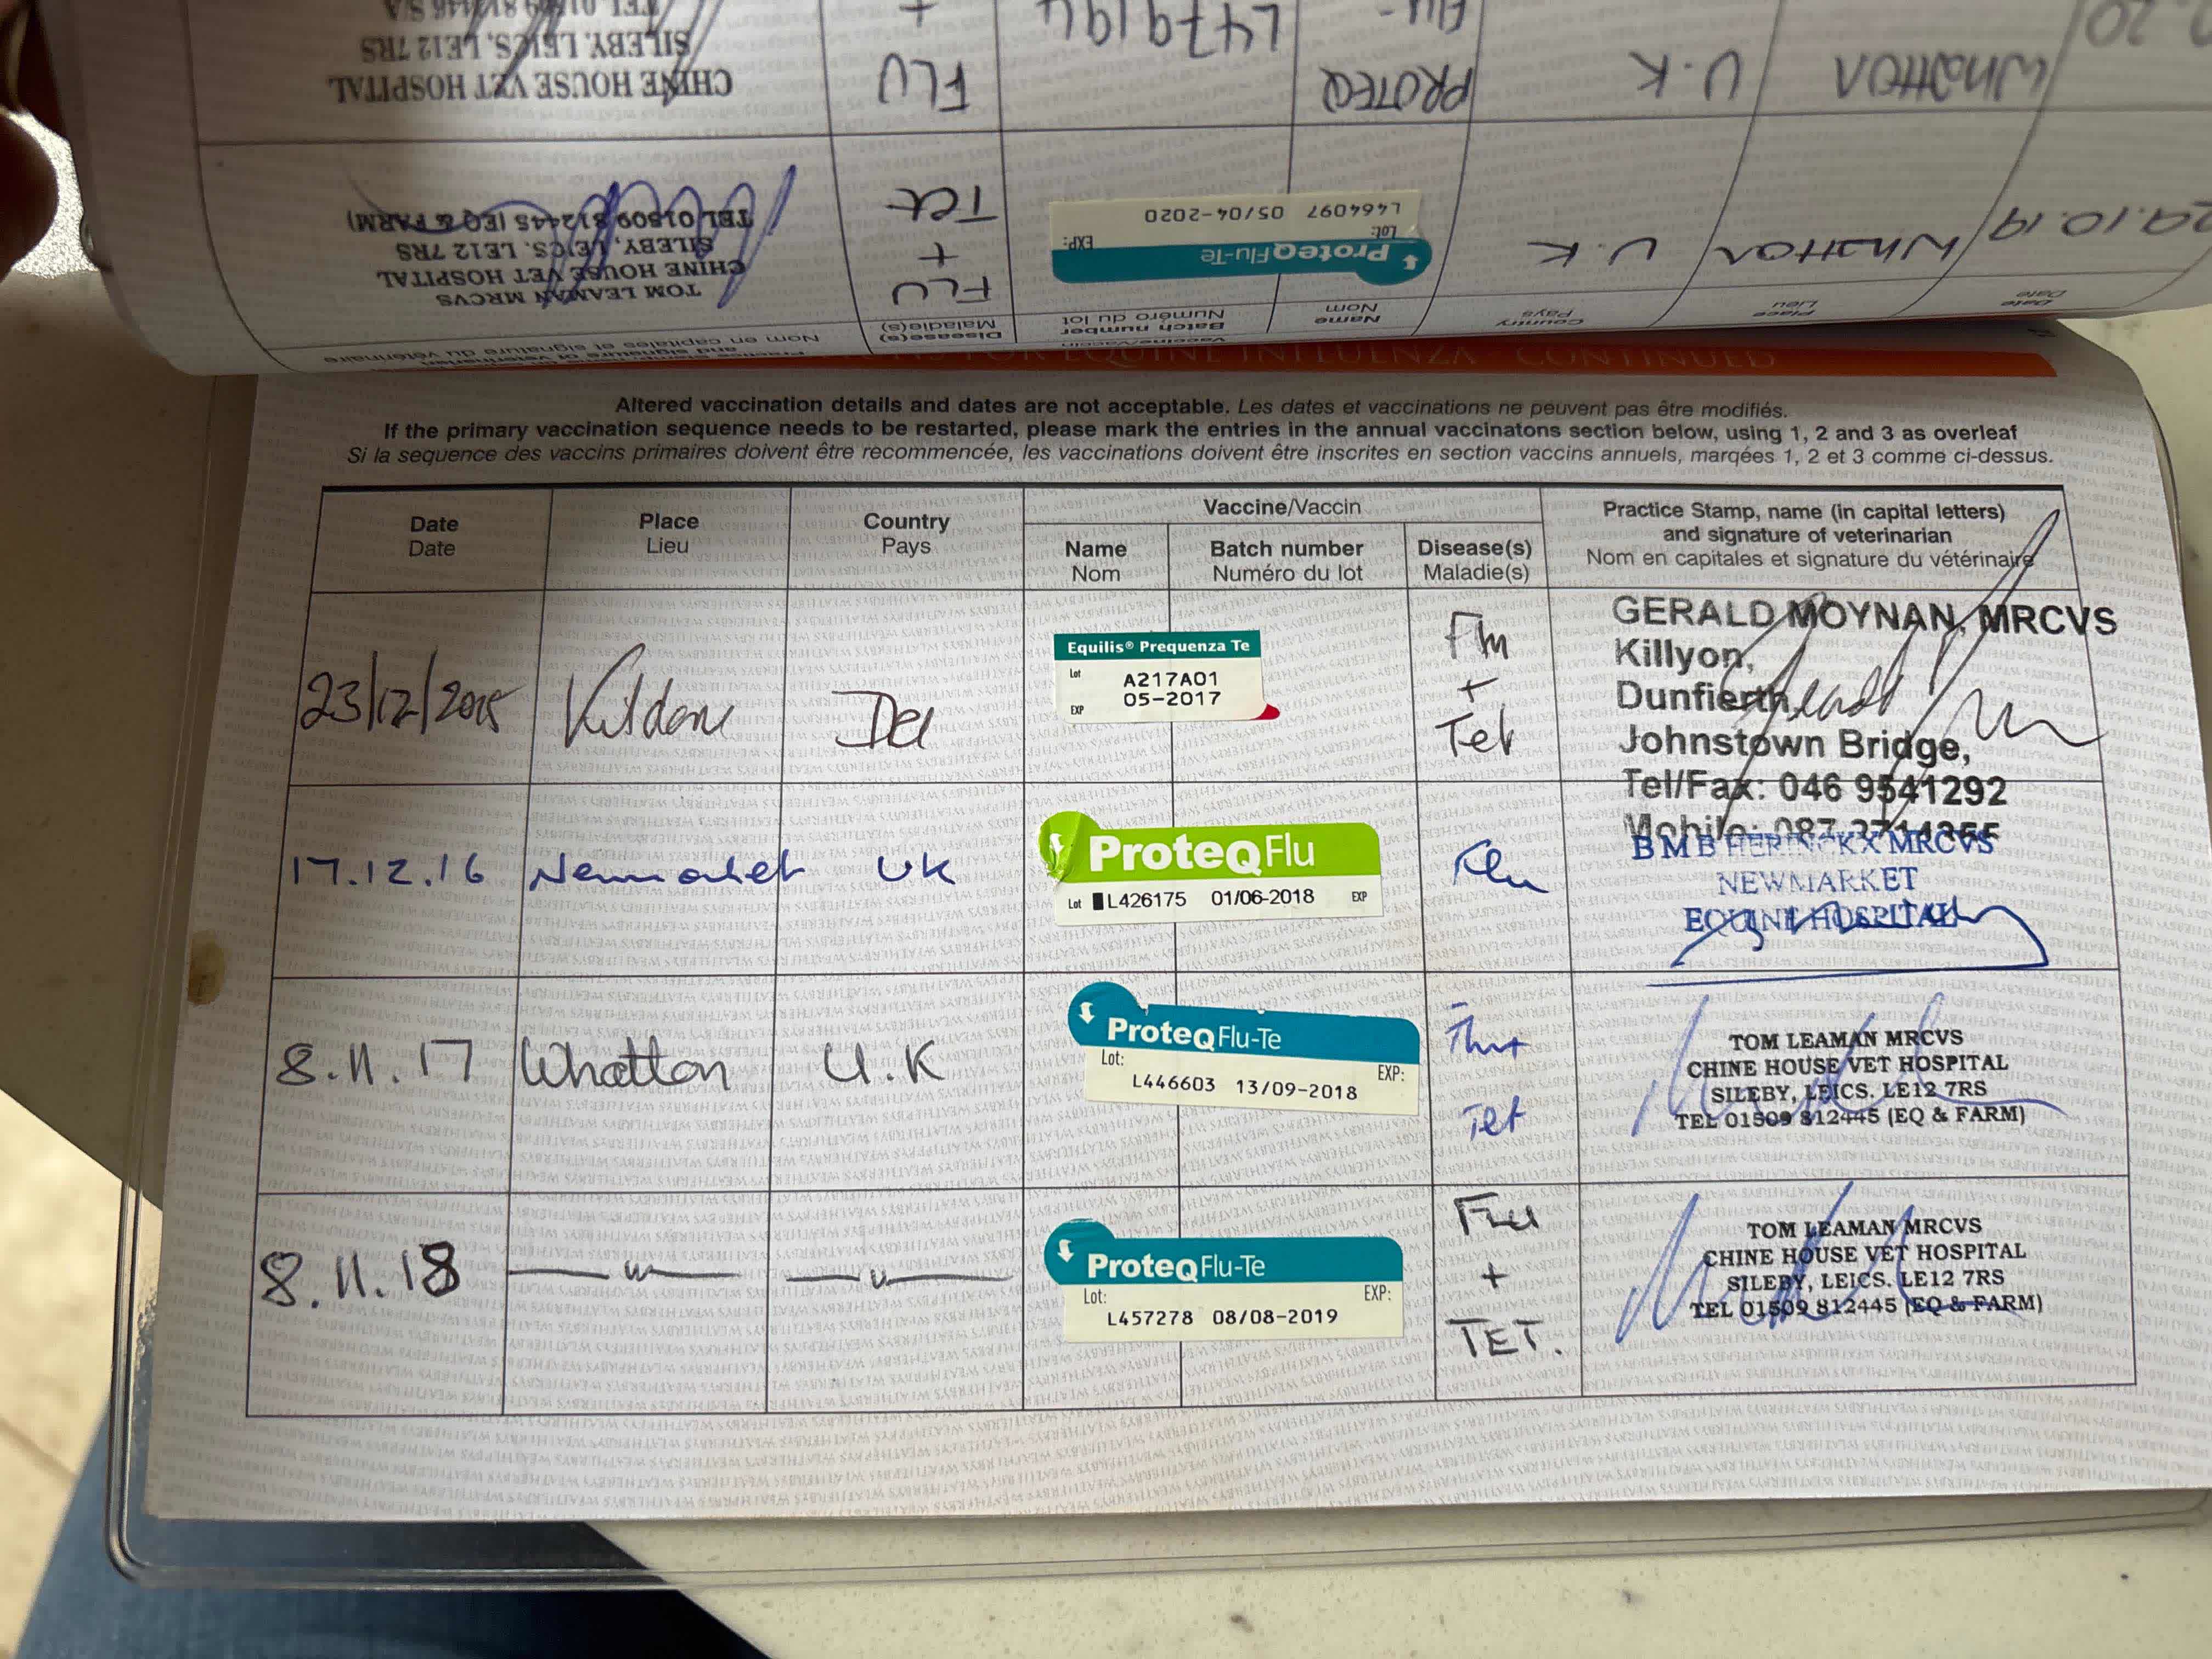 Altered vaccination details and dates are not acceptable. Les dates et vaccinations ne peuvent pas être modifiés.
If the primary vaccination sequence needs to be restarted, please mark the entries in the annual vaccinatons section below, using 1, 2 and 3 as overleaf
Si la sequence des vaccins primaires doivent être recommencée, les vaccinations doivent être inscrites en section vaccins annuels, marqées 1, 2 et 3 comme ci-dessus.
Date
Date
Place
Lieu
Country
Pays
Vaccine/Vaccin
Name
Nom
Batch number
Numéro du lot
Disease(s)
Maladie(s)
Practice Stamp, name (in capital letters)
and signature of veterinarian
Nom en capitales et signature du vétérinaire
23/12/2015
Kildare
Equilis® Prequenza Te
Lot A217A01
EXP 05-2017
Flu
+
Tet
GERALD MOYNAN, MRCVS
Killyon,
Dunfierth,
Johnstown Bridge,
Tel/Fax: 046 9541292
Mobile: 087
17.12.16
Newmarket
UK
ProteqFlu
Lot L426175 01/06-2018 EXP
Flu
MRCVS
NEWMARKET
EQUINE HOSPITAL
8.11.17
Whatton
U.K
ProteqFlu-Te
Lot: EXP:
L446603 13/09-2018
Flu+
Tet
TOM LEAMAN MRCVS
CHINE HOUSE VET HOSPITAL
SILEBY, LEICS. LE12 7RS
TEL 01509 812445 (EQ & FARM)
8.11.18
—"—
—"—
ProteqFlu-Te
Lot: EXP:
L457278 08/08-2019
Flu
+
TET.
TOM LEAMAN MRCVS
CHINE HOUSE VET HOSPITAL
SILEBY, LEICS. LE12 7RS
TEL 01509 812445 (EQ & FARM)
EQUINE INFLUENZA CONTINUED
Date
Date
Place
Lieu
Country
Pays
Name
Nom
Batch number
Numéro du lot
Disease(s)
Maladie(s)
Nom en capitales et signature du vétérinaire
29.10.19
Whatton
U.K
ProteqFlu-Te
Lot: EXP:
L464097 05/04-2020
FLU
+
Tet
TOM LEAMAN MRCVS
CHINE HOUSE VET HOSPITAL
SILEBY, LEICS. LE12 7RS
TEL 01509 812445 (EQ & FARM)
Whatton
U.K
PROTEQ
Flu-
L479194
FLU
+
CHINE HOUSE VET HOSPITAL
SILEBY, LEICS, LE12 7RS